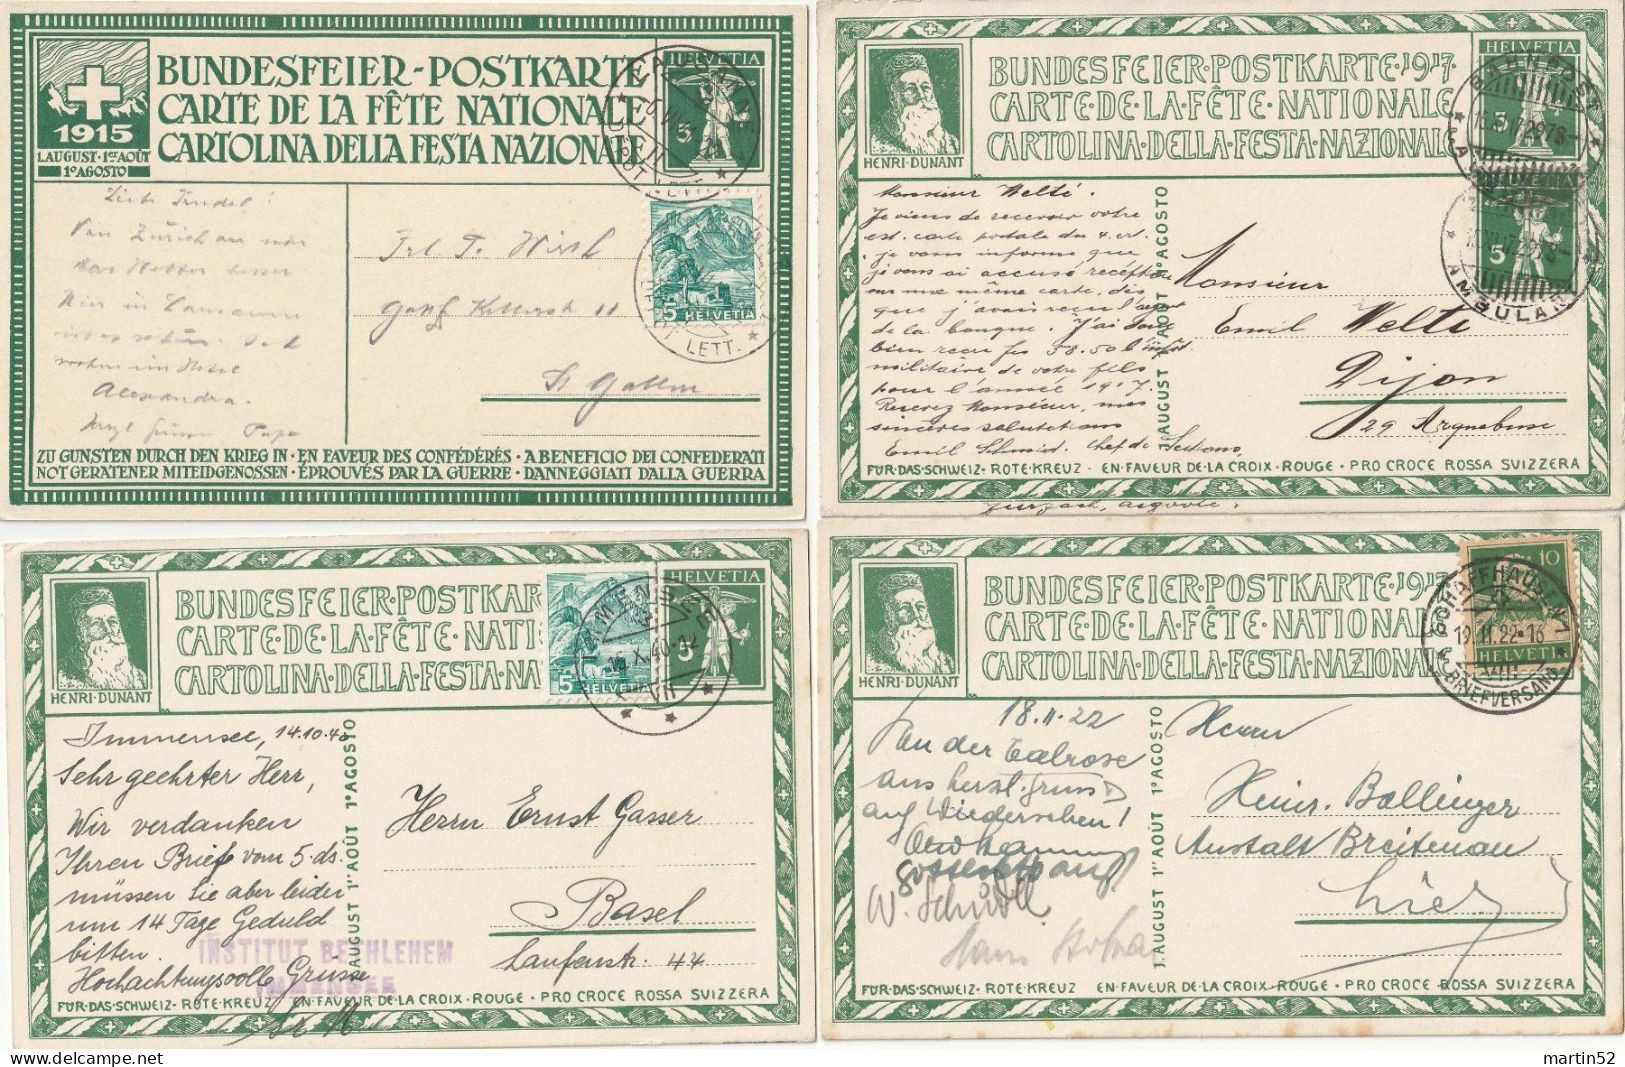 BUNDESFEIER-POSTKARTE
CARTE DE LA FÊTE NATIONALE
CARTOLINA DELLA FESTA NAZIONALE
1915
1.AUGUST·1ER AOÛT
1º AGOSTO
HELVETIA
5
LAUSANNE
DÉPÔT LETT.
5 HELVETIA
DÉPÔT LETT.
Von Zürich an war
das Wetter besser
Hier in Lausanne
wohne im Hotel
Alexandra.
Papa
Frl. T. Wirth
11
St Gallen
ZU GUNSTEN DURCH DEN KRIEG IN · EN FAVEUR DES CONFÉDÉRÉS · A BENEFICIO DEI CONFEDERATI
NOT GERATENER MITEIDGENOSSEN · ÉPROUVÉS PAR LA GUERRE · DANNEGGIATI DALLA GUERRA
HENRI·DUNANT
BUNDESFEIER·POSTKARTE·1917·
CARTE·DE·LA·FÊTE·NATIONALE
CARTOLINA·DELLA·FESTA·NAZIONALE
HELVETIA
5
BAHNPOST
HELVETIA
5
AMBULANT
Monsieur Welti.
Je viens de recevoir votre
est. carte postale du 4. ct.
je vous informe que
je vous ai accusé réception
sur une même carte, dès
que j'avais reçu l'argent
de la banque. J'ai donc
bien reçu frs 58.50 l'impôt
militaire de votre fils
pour l'année 1917.
Recevez Monsieur, mes
sincères salutations
Emil Schmid, chef de Section,
Zurzach, Argovie.
1.AUGUST 1ER AOÛT 1º AGOSTO
Monsieur
Emil Welti
Dijon
29 Arquebuse
FÜR·DAS·SCHWEIZ· ROTE·KREUZ · EN·FAVEUR·DE·LA CROIX·ROUGE · PRO CROCE ROSSA SVIZZERA
HENRI·DUNANT
BUNDESFEIER·POSTKAR
CARTE·DE·LA·FÊTE·NATI
CARTOLINA·DELLA·FESTA·NA
5 HELVETIA
HELVETIA
5
IMMENSEE
15.X.40-12
VII
Immensee, 14.10.40
Sehr geehrter Herr,
Wir verdanken
Ihren Brief vom 5. ds.
müssen Sie aber leider
um 14 Tage Geduld
bitten.
Hochachtungsvolle Grüsse
INSTITUT BETHLEHEM
IMMENSEE
1.AUGUST 1ER AOÛT 1º AGOSTO
Herrn Ernst Gasser
Basel
Laufenstr. 44
FÜR·DAS·SCHWEIZ· ROTE·KREUZ · EN·FAVEUR·DE·LA CROIX·ROUGE · PRO CROCE ROSSA SVIZZERA
HENRI·DUNANT
BUNDESFEIER·POSTKARTE·1917
CARTE·DE·LA·FÊTE·NATIONAL
CARTOLINA·DELLA·FESTA·NAZIONALE
10
HELVETIA
SCHAFFHAUSEN 1
19.II.22-16
VIII
BRIEFVERSAND
18.II.22
An der Talrose
aus herzl. Gruss
auf Wiedersehen!
1.AUGUST 1ER AOÛT 1º AGOSTO
Herrn
Heinr. Bollinger
Anstalt Breitenau
hier
FÜR·DAS·SCHWEIZ· ROTE·KREUZ EN·FAVEUR·DE·LA CROIX·ROUGE · PRO CROCE ROSSA SVIZZERA
martin52